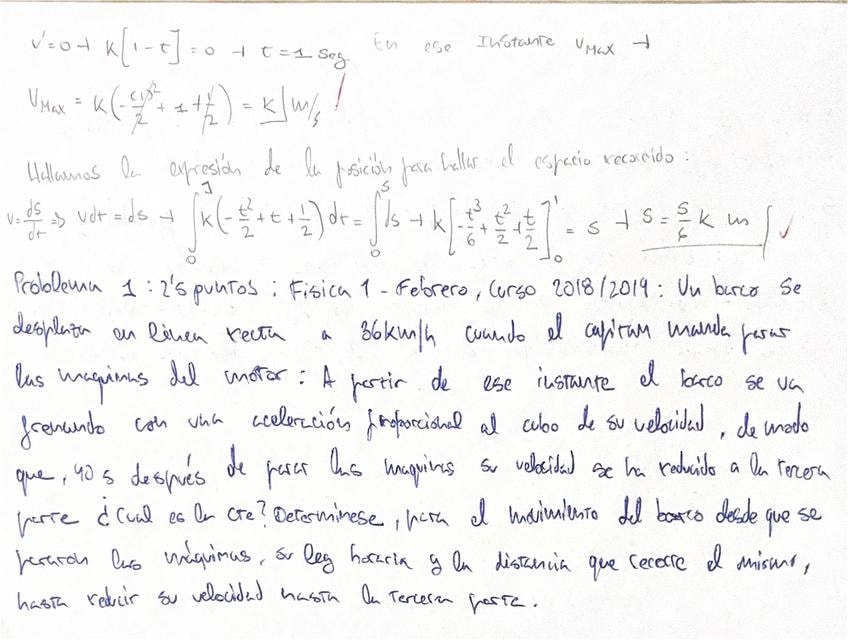 v'=0 → k[1-t]=0 → t=1 seg En ese instante vMax →
vMax = k(-(1)²/2 + 1 + 1/2) = k m/s
Hallamos la expresión de la posición para hallar el espacio recorrido:
v=ds/dt ⇒ vdt=ds → ∫₀¹ k(-t²/2+t+1/2)dt = ∫₀ˢ ds → k[-t³/6+t²/2+t/2]₀¹ = s → s=5/6 k m
Problema 1: 2's puntos: Física 1 - Febrero, Curso 2018/2019: Un barco se
desplaza en línea recta a 36km/h cuando el capitan manda parar
las maquinas del motor: A partir de ese instante el barco se va
frenando con una aceleración proporcional al cubo de su velocidad, de modo
que, 40 s después de parar las maquinas su velocidad se ha reducido a la tercera
parte ¿Cual es la cte? Determinese, para el movimiento del barco desde que se
pararon las máquinas, su ley horaria y la distancia que recorre el mismo,
hasta reducir su velocidad hasta la tercera parte.